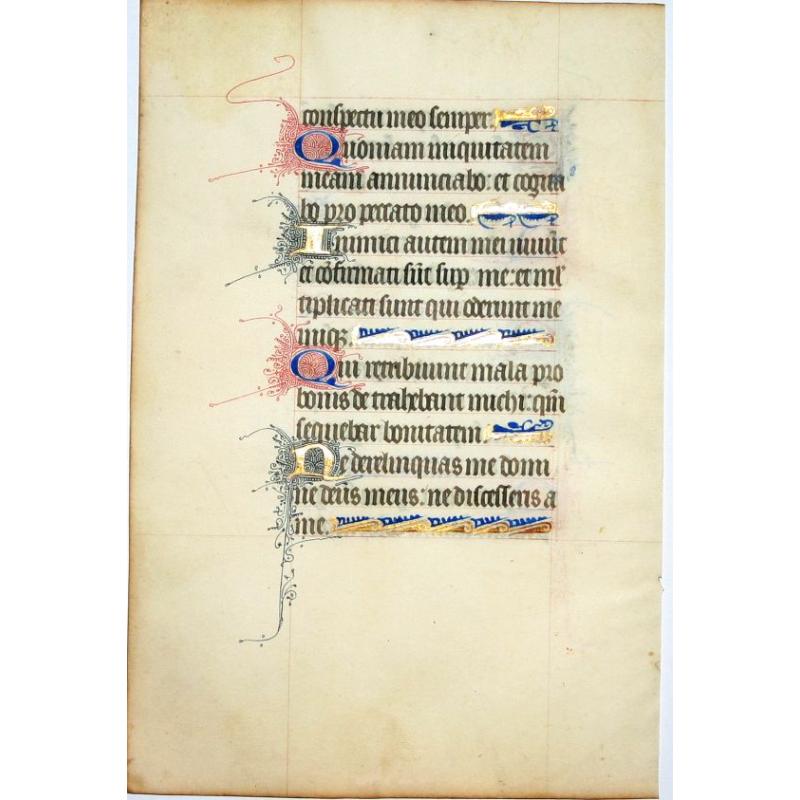 conspectu meo semper.
Quoniam iniquitatem
meam annunciabo: et cogita
bo pro peccato meo.
Inimici autem mei uiuūt
et cōfirmati sūt sup me: et ml̄
tiplicati sunt qui oderunt me
iniq̄.
Qui retribuunt mala pro
bonis detrahebant michi: qm̄
sequebar bonitatem
Ne derelinquas me domi
ne deus meus: ne discesseris a
me.